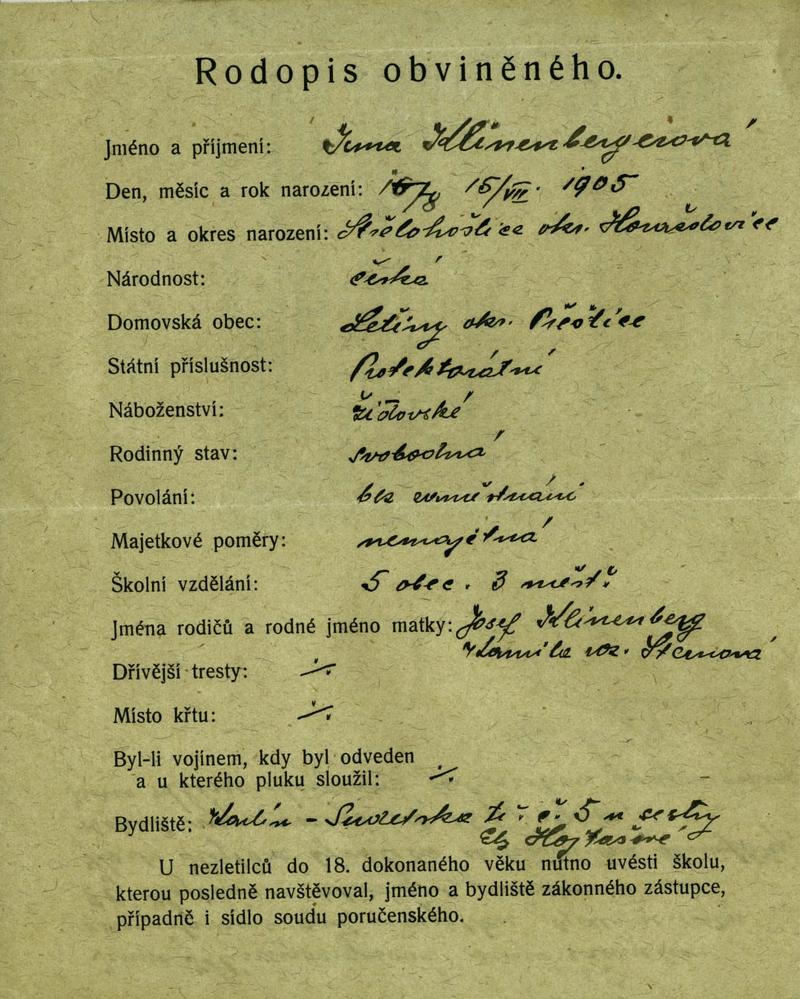 Rodopis obviněného.
Jméno a příjmení: Irma Klinenbergerová
Den, měsíc a rok narození: 15/VII. 1905
Místo a okres narození: okr.
Národnost: česká
Domovská obec: Letiny okr. Přeštice
Státní příslušnost: Protektorátní
Náboženství: židovské
Rodinný stav: svobodná
Povolání: bez zaměstnání
Majetkové poměry: nemajetná
Školní vzdělání: 5 obec. 3 měšť.
Jména rodičů a rodné jméno matky: Josef Klinenberg
roz.
Dřívější tresty: ./.
Místo křtu: ./.
Byl-li vojínem, kdy byl odveden
a u kterého pluku sloužil: ./.
Bydliště: Kolín - tř. č. 5 u
U nezletilců do 18. dokonaného věku nutno uvésti školu,
kterou posledně navštěvoval, jméno a bydliště zákonného zástupce,
případně i sídlo soudu poručenského.